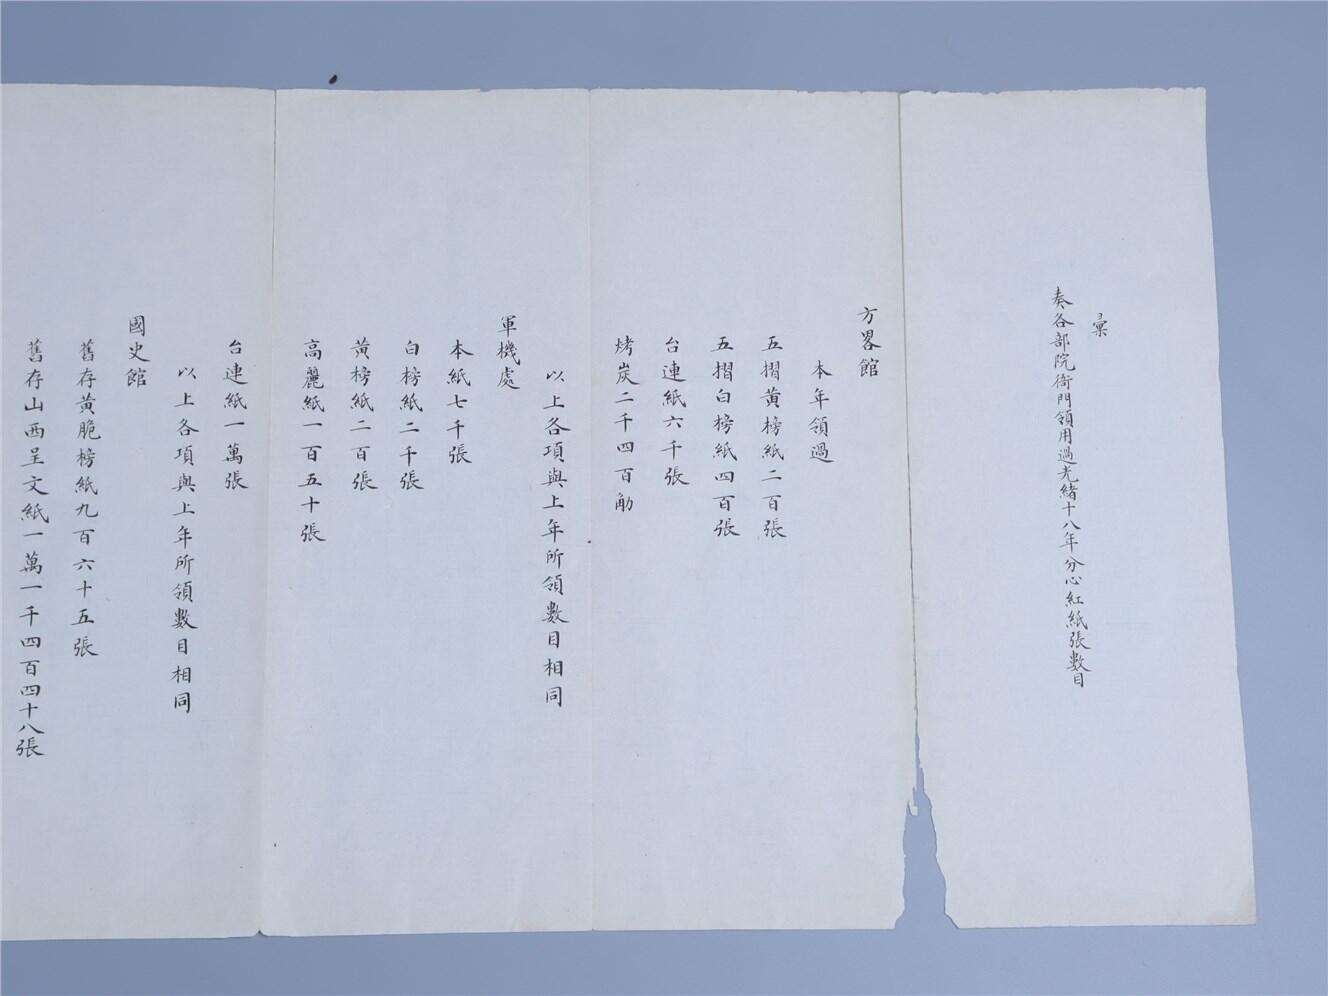 彙
奏各部院衙門領用過光緒十八年分心紅紙張數目
方畧館
本年領過
五摺黄榜紙二百張
五摺白榜紙四百張
台連紙六千張
烤炭二千四百觔
以上各項與上年所領數目相同
軍機處
本紙七千張
白榜紙二千張
黄榜紙二百張
高麗紙一百五十張
台連紙一萬張
以上各項與上年所領數目相同
國史館
舊存黄脆榜紙九百六十五張
舊存山西呈文紙一萬一千四百四十八張